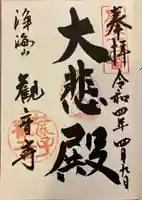 奉拝
令和四年四月九日
大悲殿
浄海山
観音寺